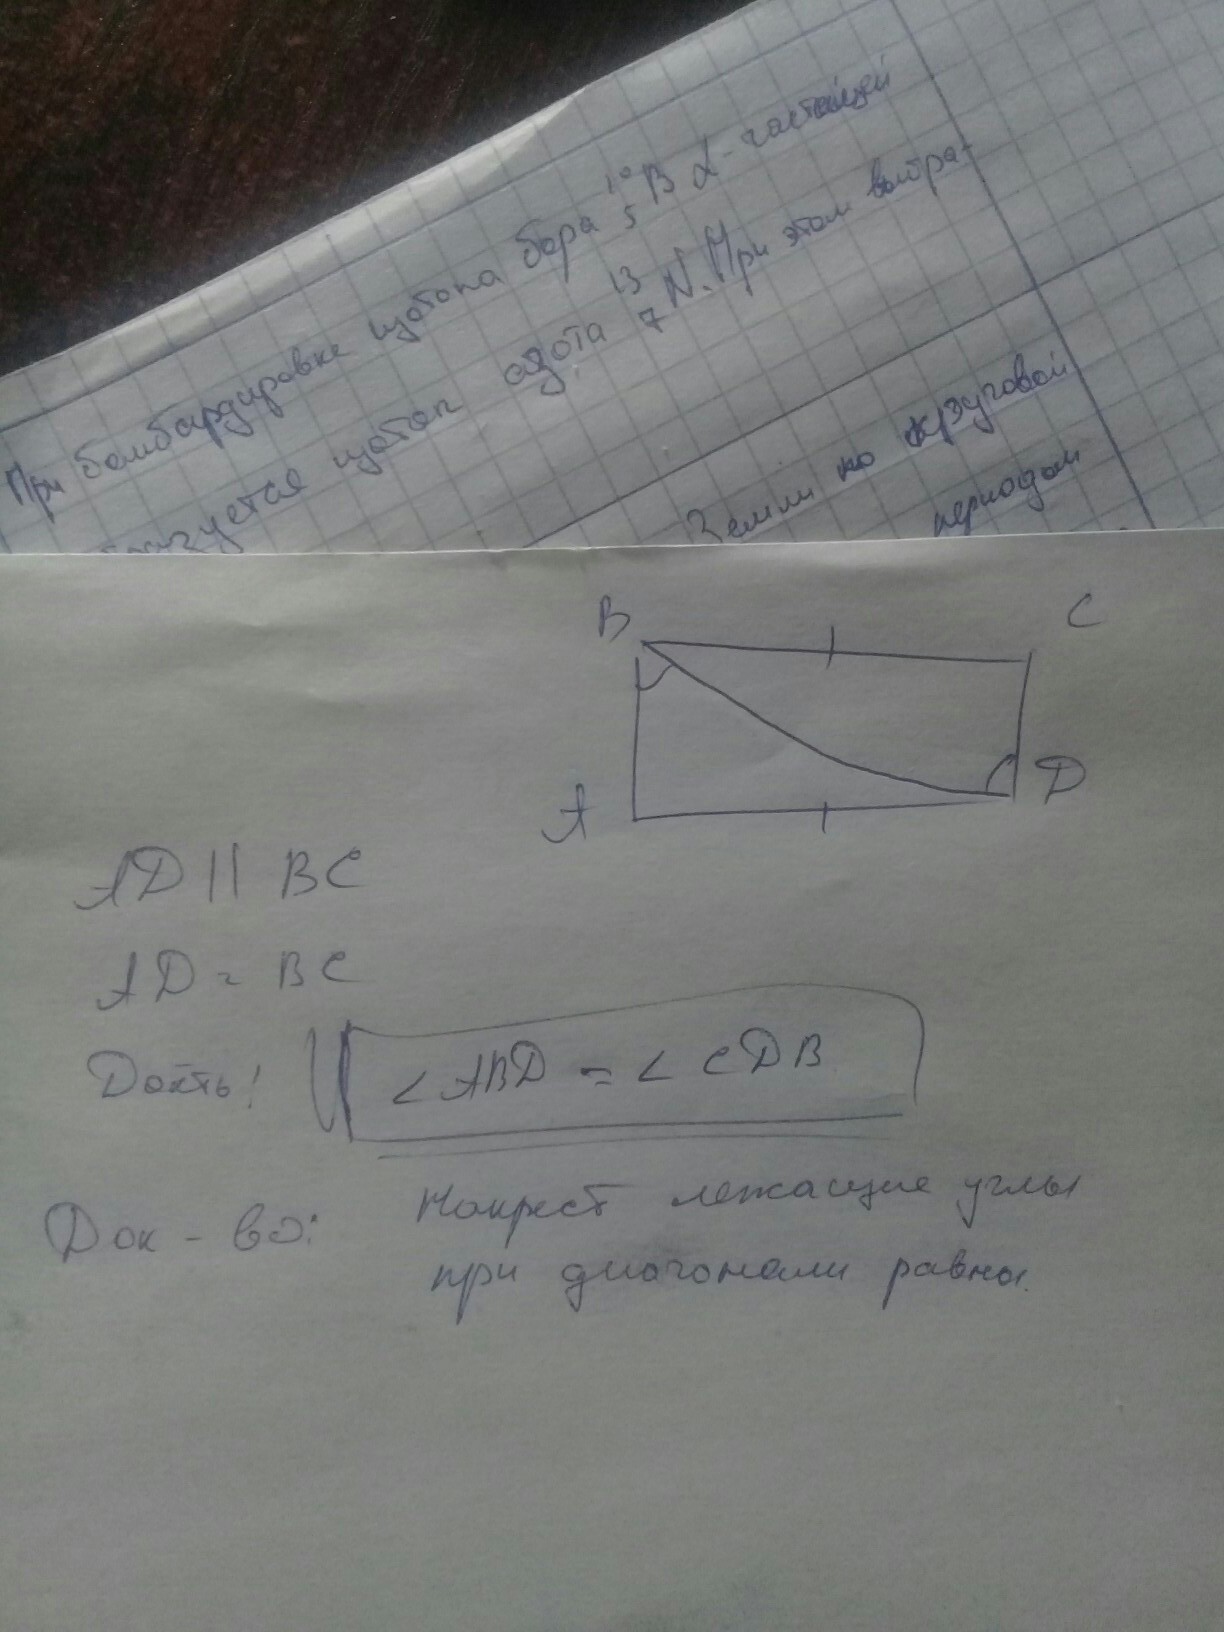 При бомбардировке изотопа бора ¹⁰₅B α-частицей
образуется изотоп азота ¹³₇N. При этом выбра-
Земли по круговой
периодом
B
C
A
D
AD || BC
AD = BC
∠ABD = ∠CDB
Док-во: Накрест лежащие углы
при диагонали равны.